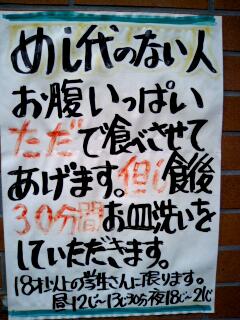 めし代のない人
お腹いっぱい
ただで食べさせて
あげます。但し食後
30分間お皿洗いを
していただきます。
18才以上の学生さんに限ります。
昼12じ〜13じ30分夜18じ〜21じ